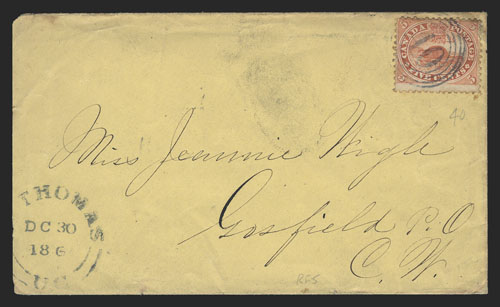 CANADA POSTAGE
5 5
40
Miss Jeannie Wigle
Gosfield P.O
C. W.
THOMAS
DC 30
186
U.C
RES